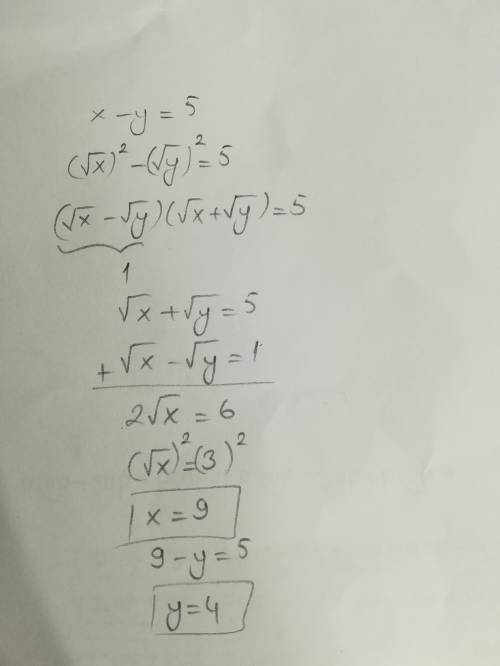 x - y = 5
(√x)² - (√y)² = 5
(√x - √y)(√x + √y) = 5
1
√x + √y = 5
+ √x - √y = 1
2√x = 6
(√x)² = (3)²
x = 9
9 - y = 5
y = 4